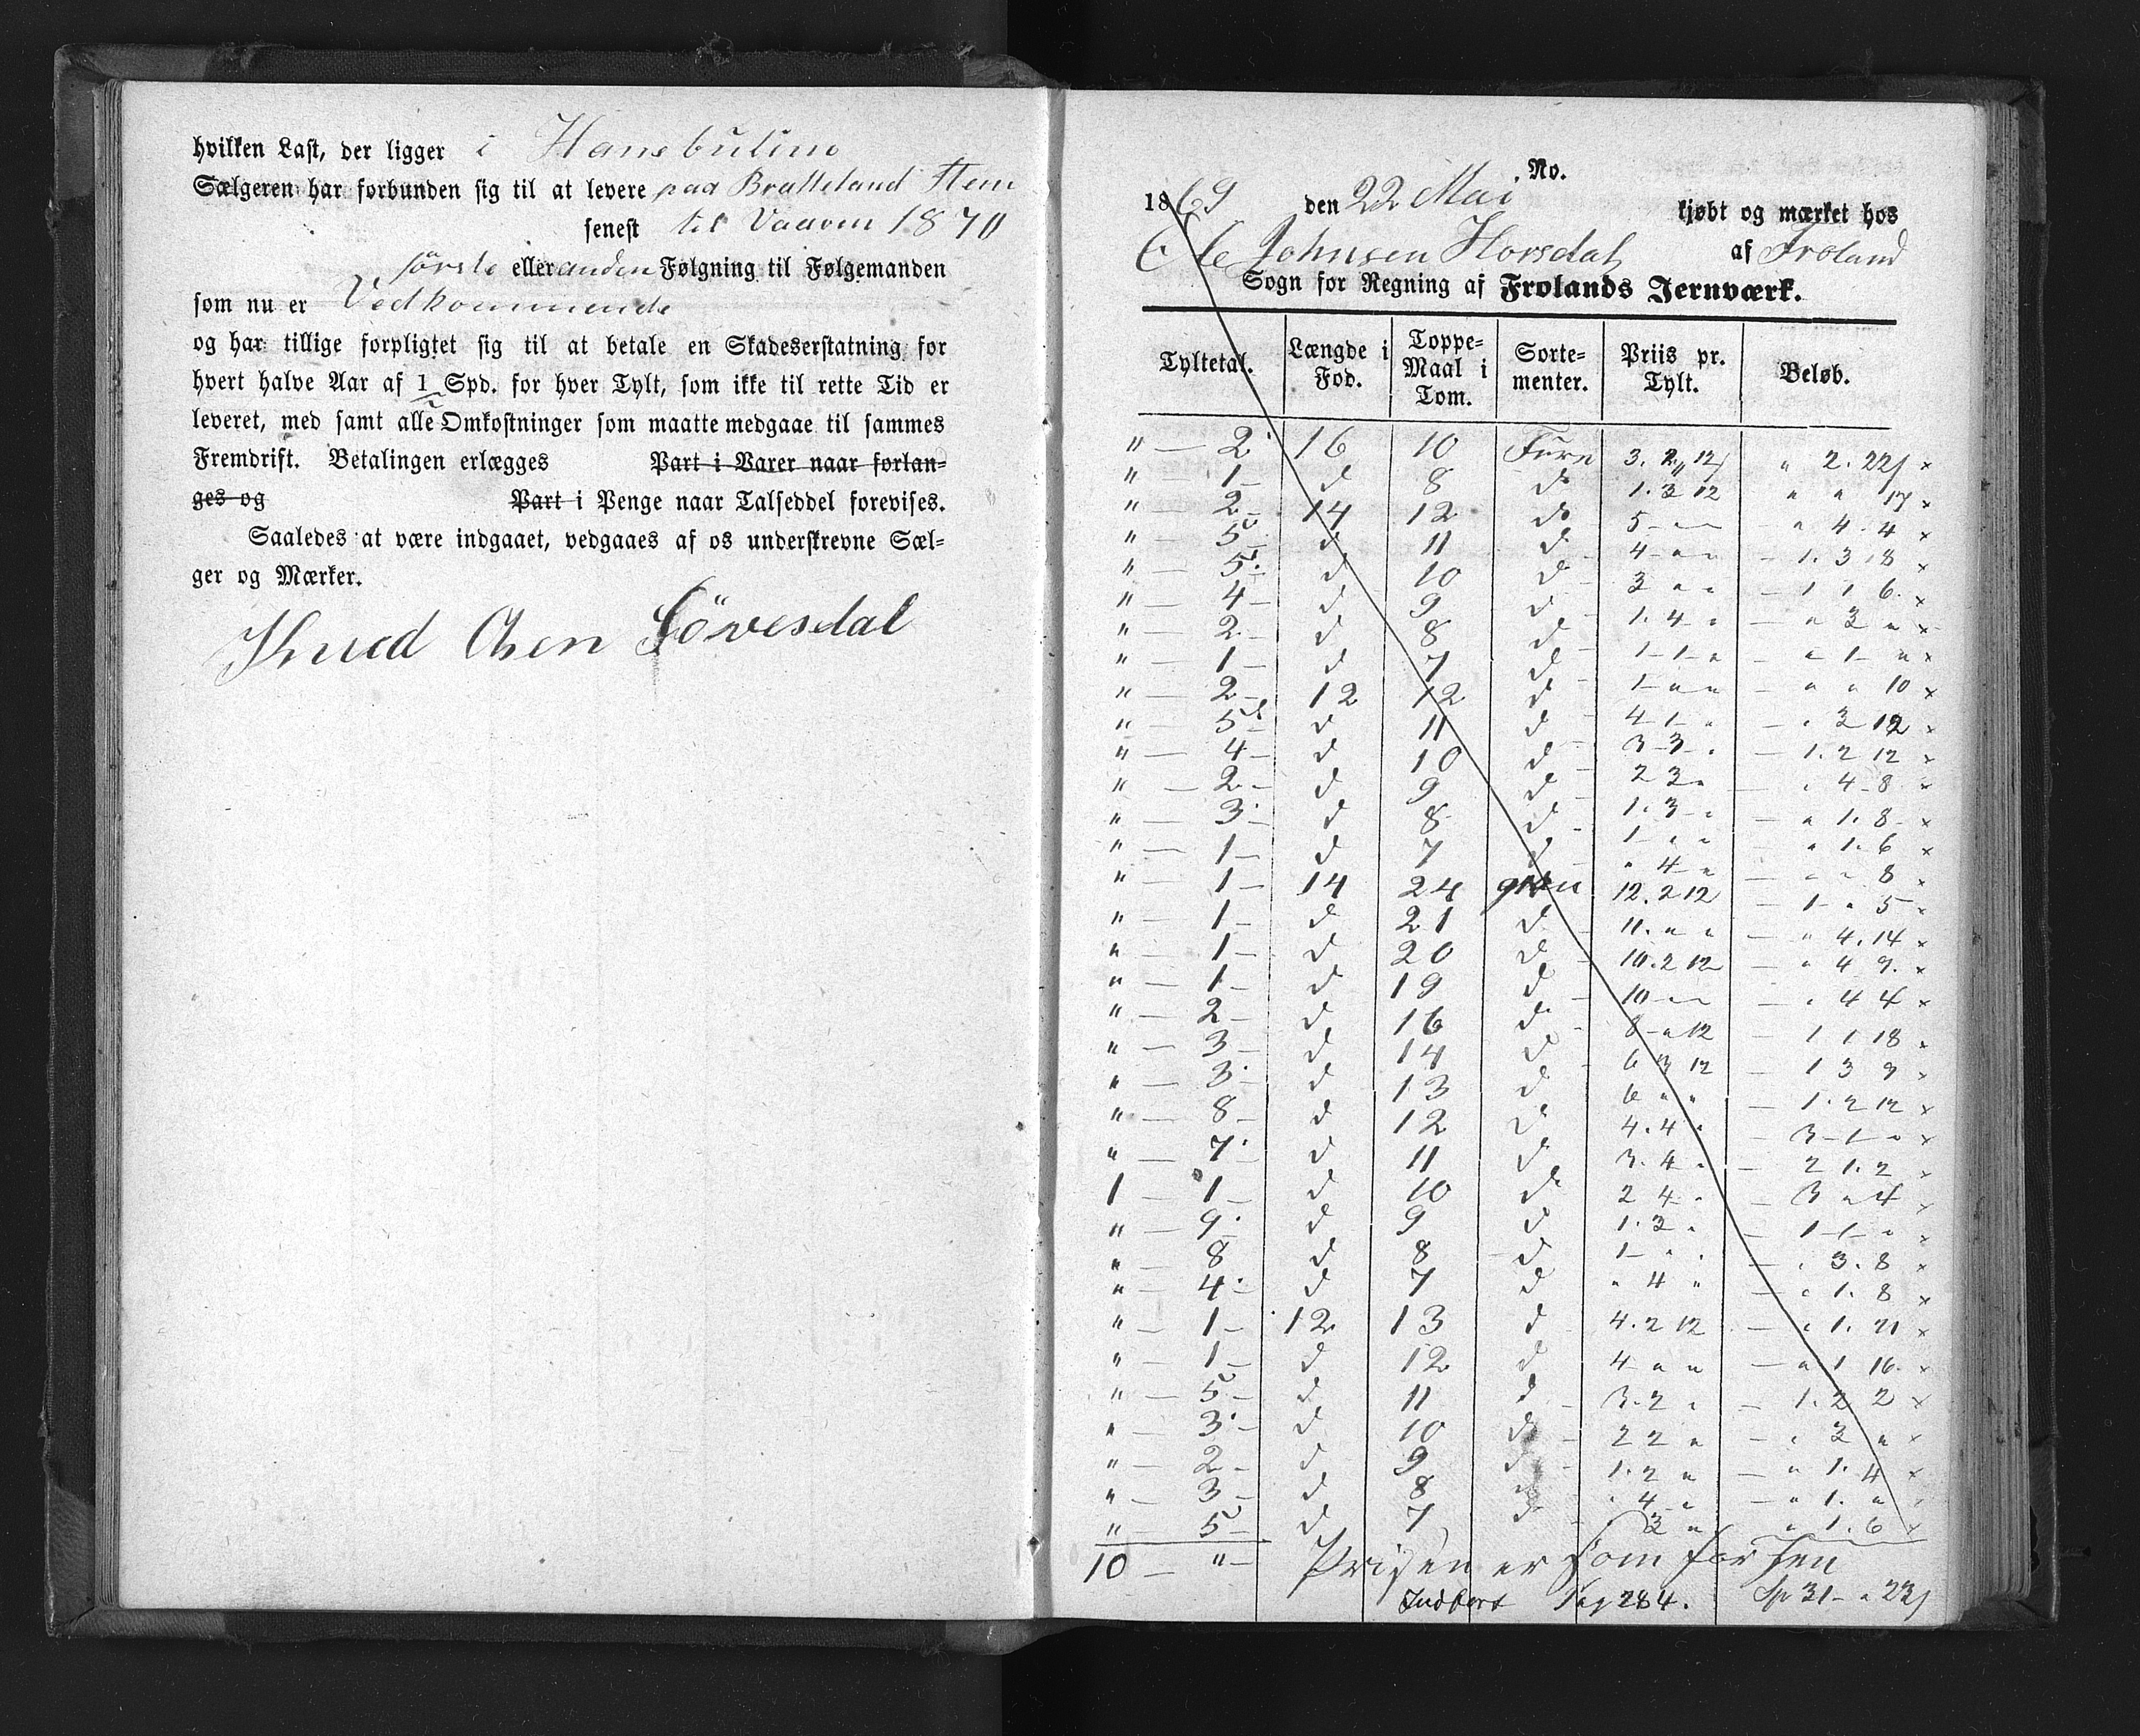 hvilken Last, der ligger i Hansbulino
Sælgeren har forbunden sig til at levere paa Bratteland Hem
senest til Vaaren 1870
første eller anden Følgning til Følgemanden
som nu er Vedkommende
og har tillige forpligtet sig til at betale en Skadeserstatning for
hvert halve Aar af 1 Spd. for hver Tylt, som ikke til rette Tid er
leveret, med samt alle Omkostninger som maatte medgaae til sammes
Fremdrift. Betalingen erlægges Part i Varer naar forlan-
ges og Part i Penge naar Talseddel forevises.
Saaledes at være indgaaet, vedgaaes af os underskrevne Sæl-
ger og Mærker.
Knud Olsen Lövesdal
No.
1869 den 22 Mai kjøbt og mærket hos
Johnsen Horsdal af Froland
Sogn for Regning af Frolands Jernværk.
Tyltetal. Længde i Fod. Toppe-Maal i Tom. Sorte-menter. Priis pr. Tylt. Beløb.
" — 2 16 10 Furu 3. 2 12 " 2. 22 ×
" — 1 — d 8 do 1. 3 12 " " 17 ×
" — 2 — 14 12 do 5 — — " 4. 4 ×
" — 5 — d 11 d 4 — " " — 1. 3 18 ×
" — 5 — d 10 d 3 " " — 1 1 6 ×
" — 4 — d 9 d 1. 4 " — " 3 " ×
" — 2 — d 8 d 1 — 1 — " — " 1 — " ×
" — 1 — d 7 d 1 — " " — " " 10 ×
" — 2 — 12 12 d 4 — 1 — " — " 3 12 ×
" — 5 — d 11 d 3 — 3 — " — 1. 2 12 ×
" — 4 — d 10 d 2 3 " — " 4 — 8 ×
" — 2 — d 9 d 1. 3 — " — " 1. 8 ×
" — 3 — d 8 d 1 — " " — " 1. 6 ×
" — 1 — d 7 d " 4 — " — " " 8 ×
" — 1 — 14 24 gran 12. 2 12 — 1 — " 5 ×
" — 1 — d 21 d 11. " " — " 4. 14 ×
" — 1 — d 20 d 10. 2 12 — " 4 9. ×
" — 1 — d 19 d 10 — — — " 4 4 ×
" — 2 — d 16 d 8 — " 12 — 1 1 18 ×
" — 3 — d 14 d 6 3 12 — 1 3 9 ×
" — 3 — d 13 d 6 " " — 1. 2 12 ×
" — 8 — d 12 d 4. 4 " — 3 — 1 — " ×
" — 7 — d 11 d 3. 4 " — 2 1. 2 ×
1 — 1 — d 10 d 2 4 " — 3 " 4 ×
" — 9 — d 9 d 1. 3 " — 1 — 1 — " ×
" — 8 d 8 d 1 — " " — " 3. 8 ×
" — 4 — d 7 d " 4 " — " 1. 8 ×
" — 1 — 12 13 d 4. 2 12 — " 1. 21 ×
" — 1 — d 12 d 4 — " " — " 1 16 ×
" — 5 — d 11 d 3. 2 " — 1. 2 2 ×
" — 3 — d 10 d 2 2 " — " 3 " ×
" — 2 — d 9 d 1. 2 " — " 1. 4 ×
" — 3 — d 8 d " 4 — " — " 1. " ×
" — 5 — d 7 d " 3 " " 1. 6 ×
10 — " — Prisen er som for hen
Indført Pag 284. Sp 31 — " 23